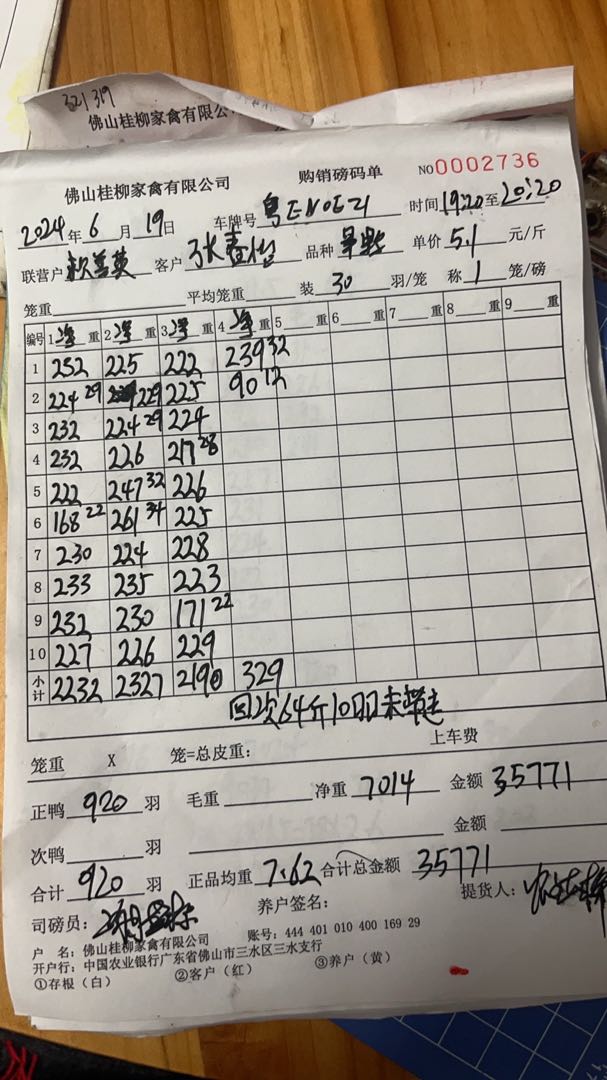 321 319
佛山桂柳家禽有限公
佛山桂柳家禽有限公司 购销磅码单 NO0002736
2024年6月19日 车牌号 粤E 时间19:20至20:20
联营户 客户 张 品种 单价5.1元/斤
笼重 平均笼重 装30羽/笼 称1笼/磅
编号 1 重 2 重 3 重 4 重 5 重 6 重 7 重 8 重 9 重
1 252 225 222 239 32
2 224 29 229 225 90 12
3 232 224 29 224
4 232 226 217 28
5 222 247 32 226
6 168 22 261 34 225
7 230 224 228
8 233 235 223
9 232 230 171 22
10 227 226 229
小计 2232 2327 2190 329
次64斤10羽未
笼重 X 笼=总皮重: 上车费
正鸭920羽 毛重 净重7014 金额35771
次鸭 羽 金额
合计920羽 正品均重7.62 合计总金额35771
司磅员: 养户签名: 提货人:
户 名: 佛山桂柳家禽有限公司 账号: 444 401 010 400 169 29
开户行: 中国农业银行广东省佛山市三水区三水支行
①存根（白） ②客户（红） ③养户（黄）